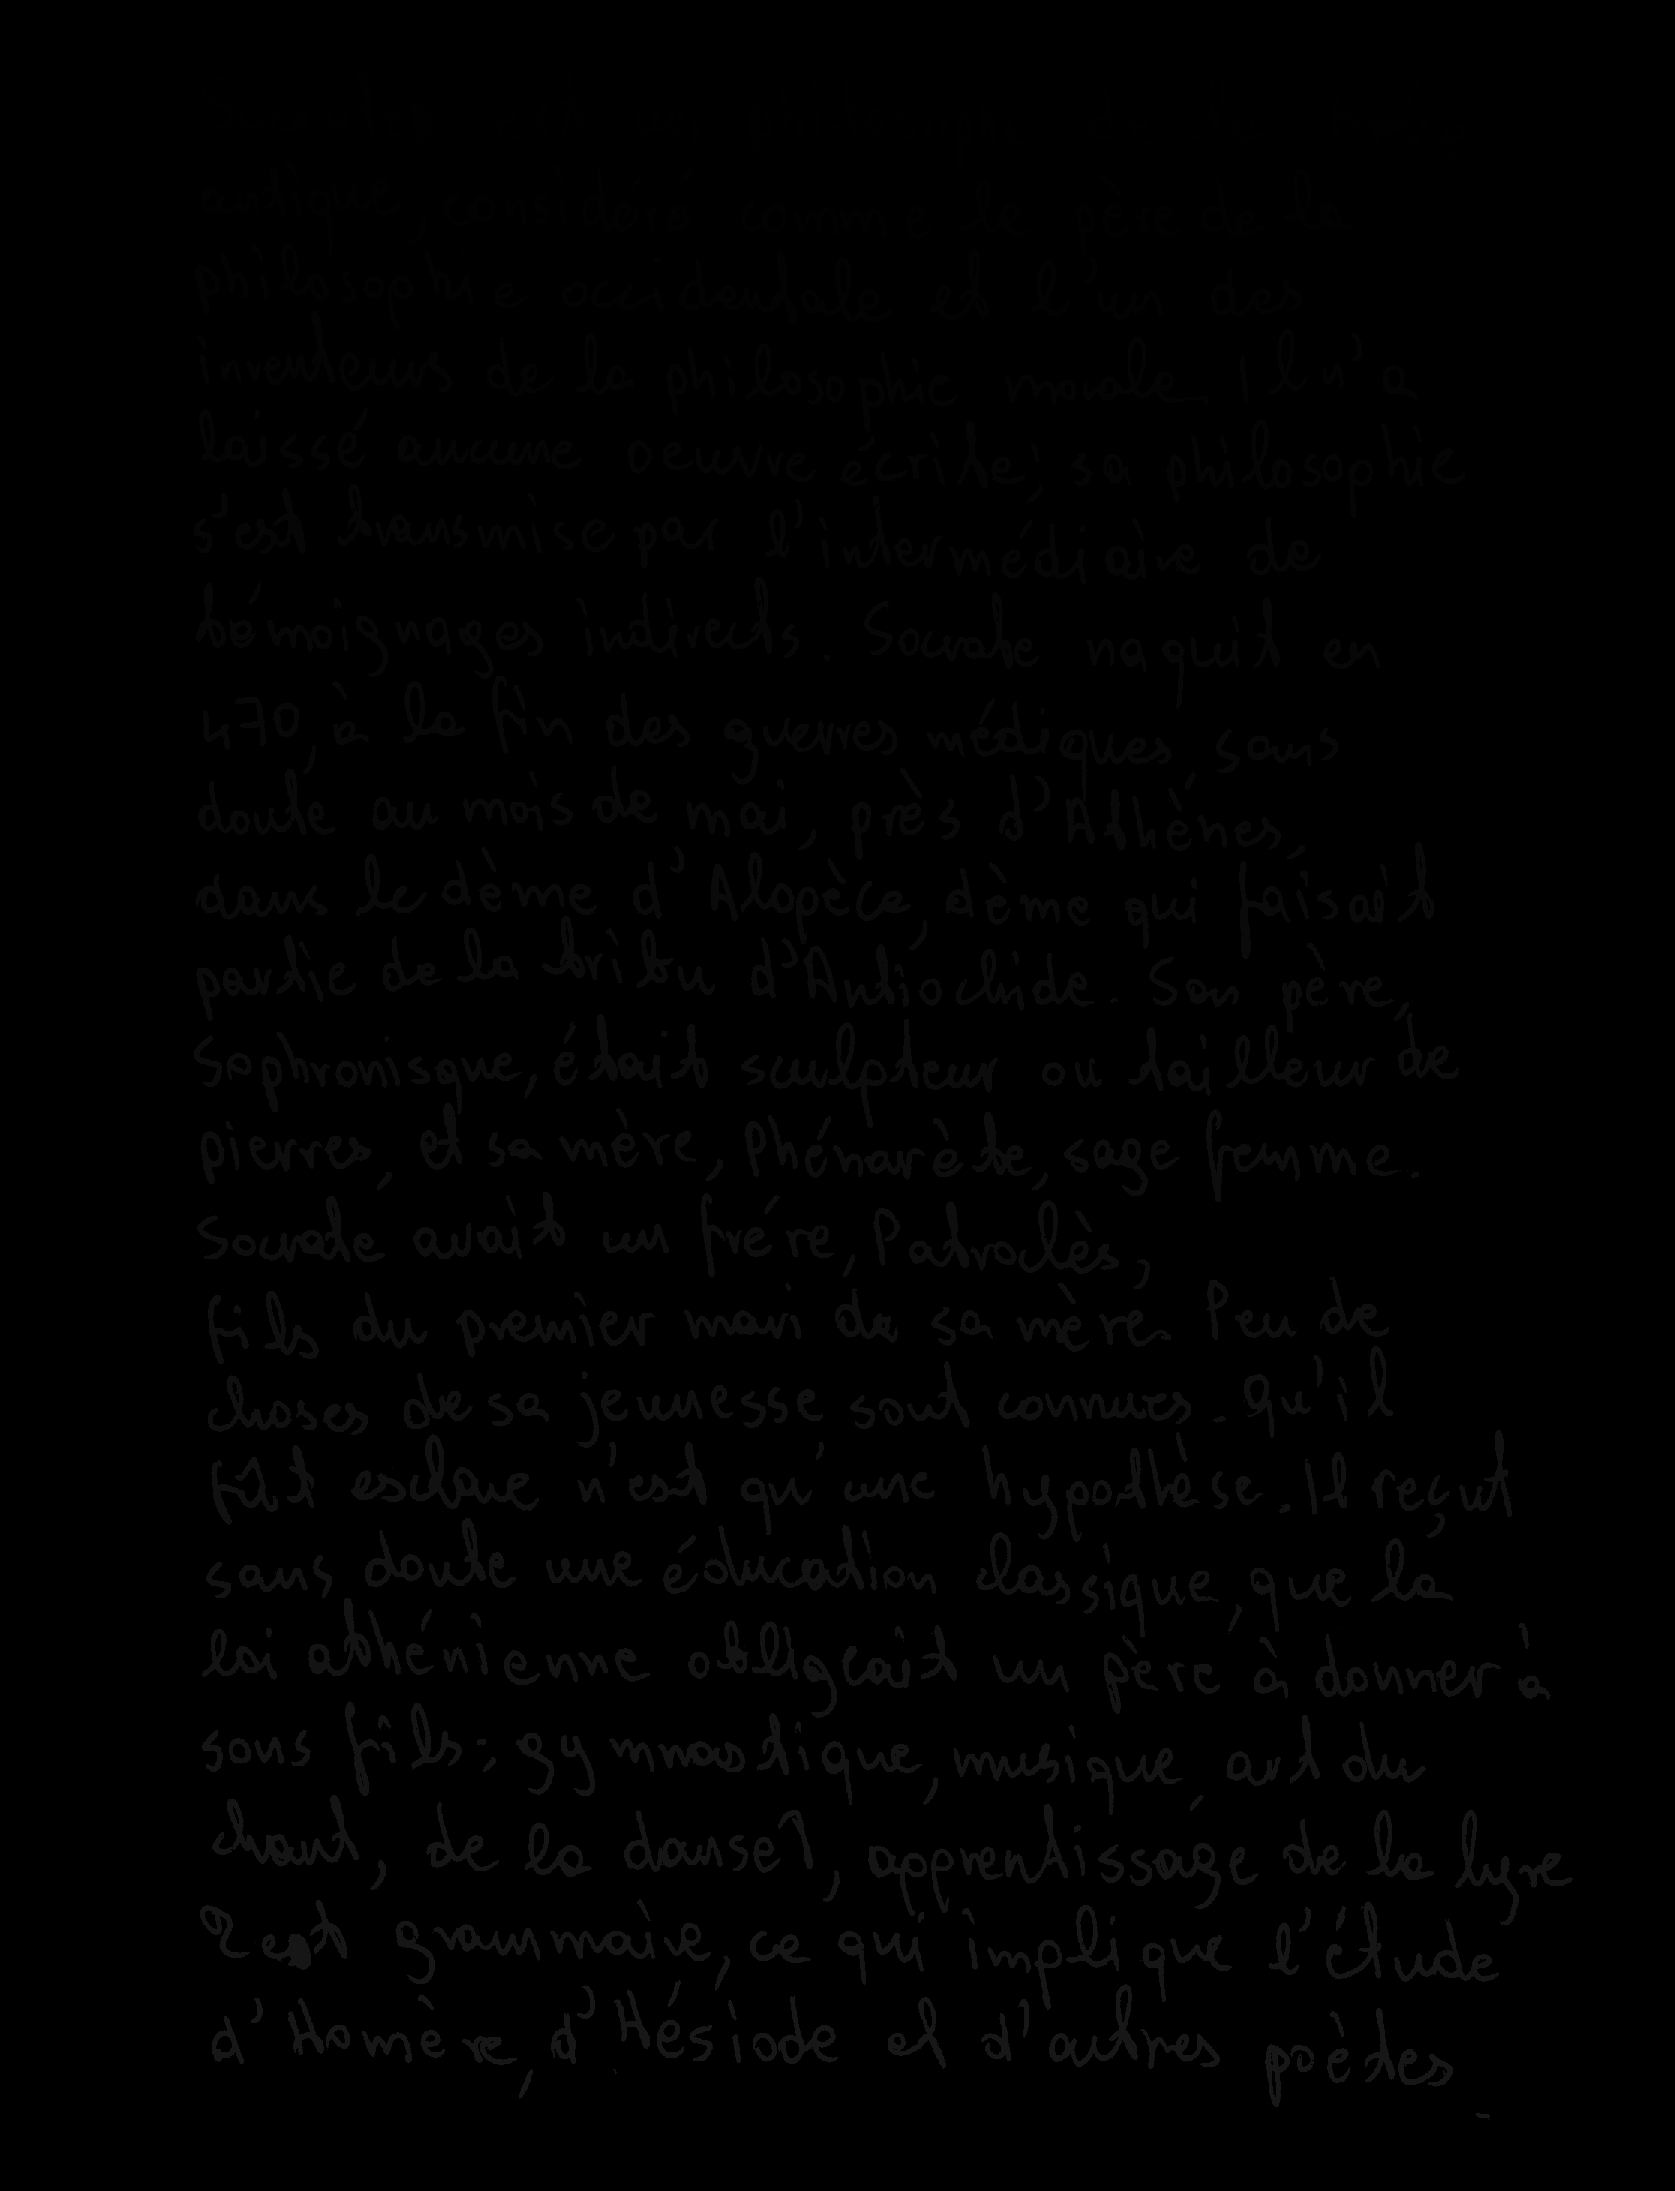 Socrates est un philosophe de la Grèce
antique, considéré comme le père de la
philosophie occidentale et l'un des
inventeurs de la philosophie morale. Il n'a
laissé aucune oeuvre écrite; sa philosophie
s'est transmise par l'intermédiaire de
témoignages indirects. Socrate naquit en
470, à la fin des guerres médiques, sans
doute au mois de mai, près d'Athénes,
dans le dème d'Alopèce, dème qui faisait
partie de la tribu d'Antiochide. Son père,
Sophronisque, était sculpteur ou tailleur de
pierres, et sa mère, Phénarète, sage femme.
Socrate avait un frére, Patroclès,
fils du premier mari de sa mère. Peu de
choses de sa jeunesse sont connues. Qu'il
fût esclave n'est qu'une hypothèse. Il reçut
sans doute une éducation classique, que la
loi athénienne obligeait un père à donner à
sons fils: gymnastique, musique, art du
chant, de la danse, apprentissage de la lyre
et grammaire, ce qui implique l'étude
d'Homère, d'Hésiode et d'autres poètes.